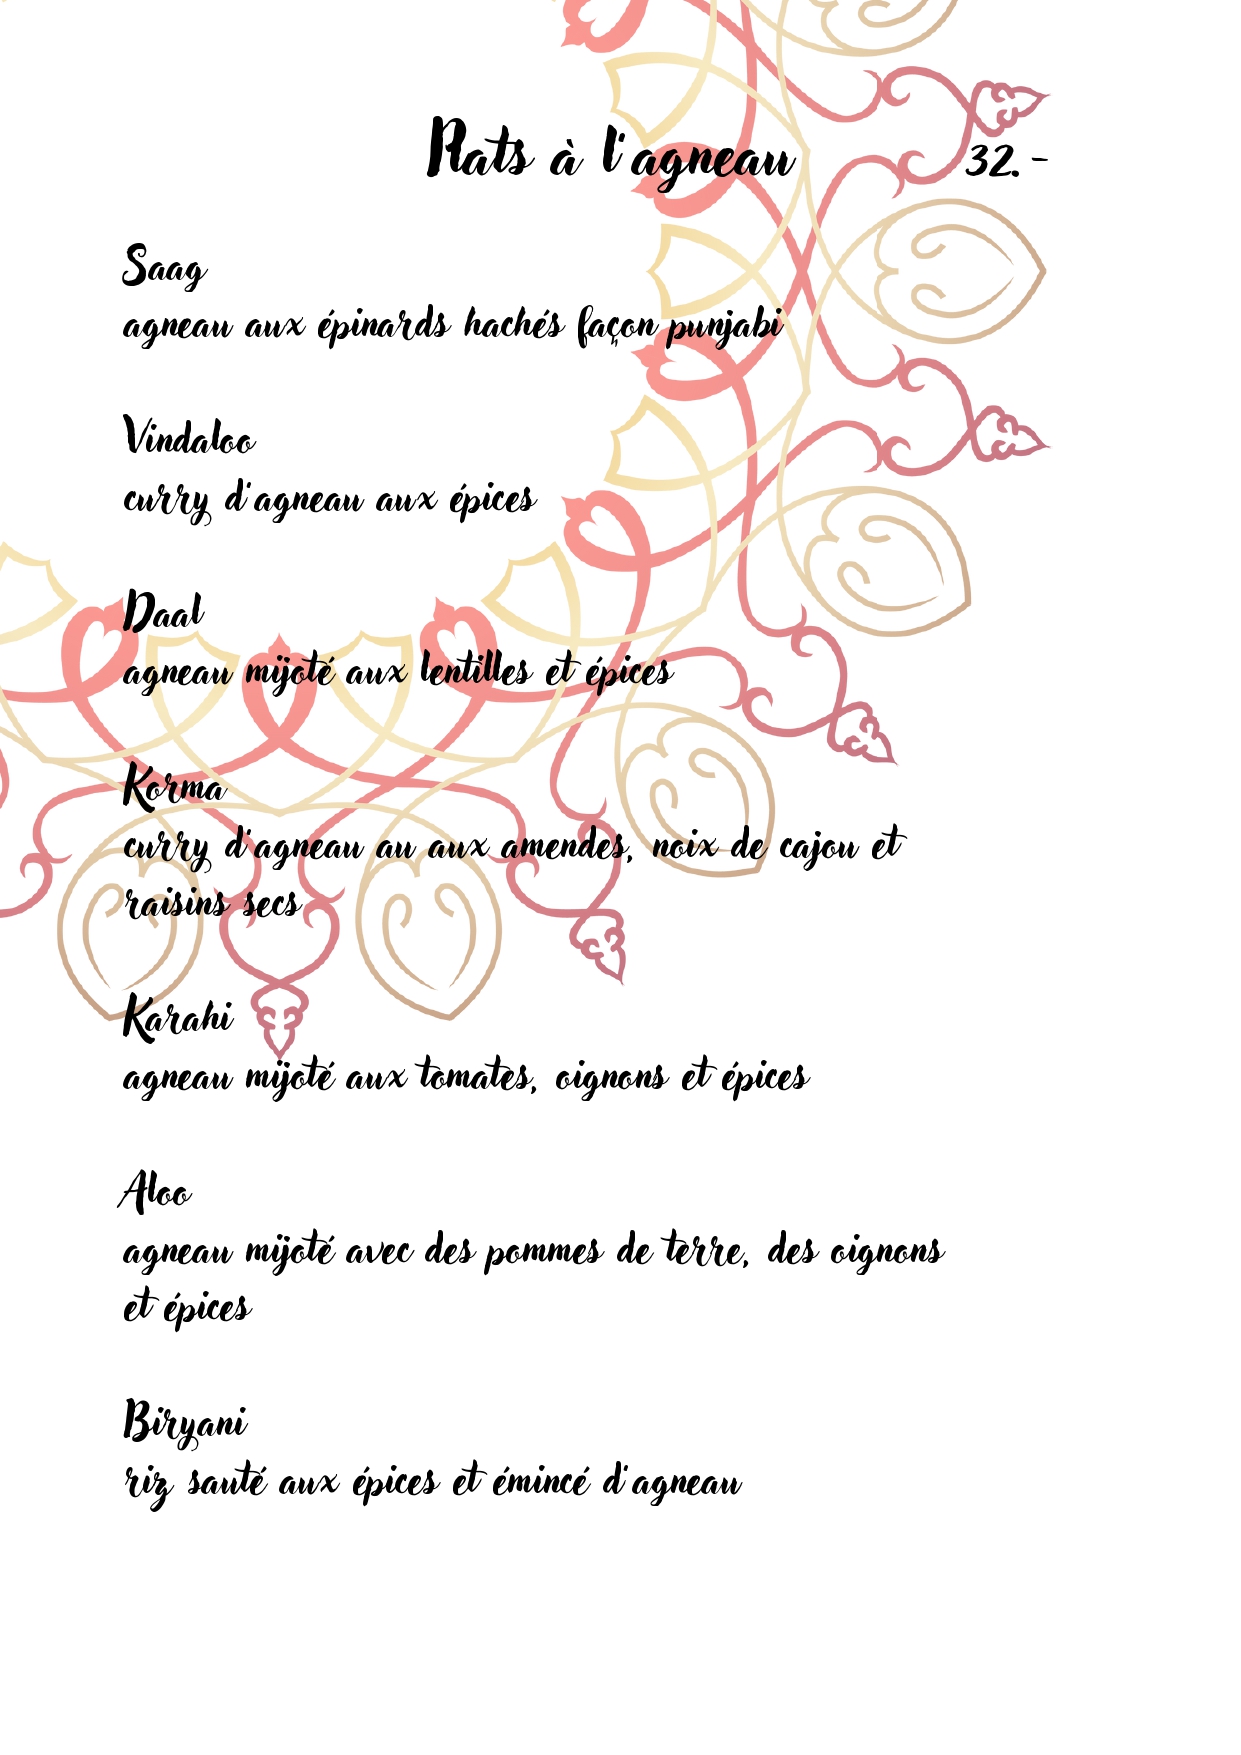 Plats à l'agneau 32.-
Saag
agneau aux épinards hachés façon punjabi
Vindaloo
curry d'agneau aux épices
Daal
agneau mijoté aux lentilles et épices
Korma
curry d'agneau au aux amendes, noix de cajou et
raisins secs
Karahi
agneau mijoté aux tomates, oignons et épices
Aloo
agneau mijoté avec des pommes de terre, des oignons
et épices
Biryani
riz sauté aux épices et émincé d'agneau